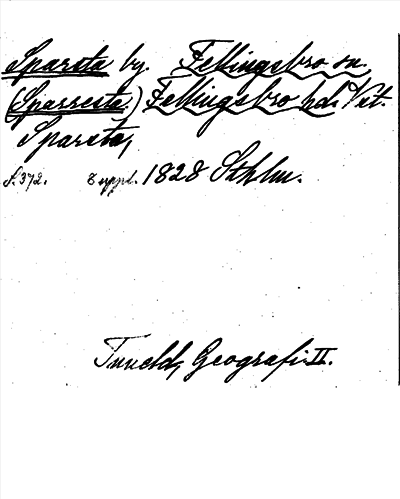 Sparsta by. Fellingsbro sn.
(Sparresta.) Fellingsbro hd. Vstl.
Sparsta,
S. 372. Suppl. 1828 Sthlm.
Tuneld, Geografi II.